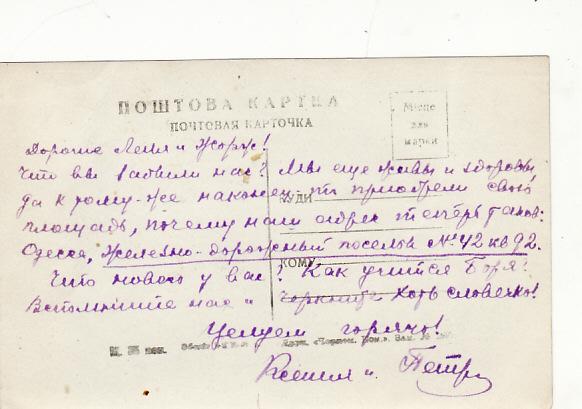 ПОШТОВА КАРТКА
ПОЧТОВАЯ КАРТОЧКА
Місце
для
марки
Дорогие Леля и Жорж!
Что вы забыли нас? Мы еще живы и здоровы,
да к тому-же наконец-то приобрели свою
площадь, почему наш адрес теперь таков:
КУДИ
Одесса, Железно-дорожный поселок № 42 кв 92.
КОМУ
Что нового у вас? Как учится Боря?
Вспомните нас и черкните хоть словечко!
Целуем горячо!
Ксения и Петр